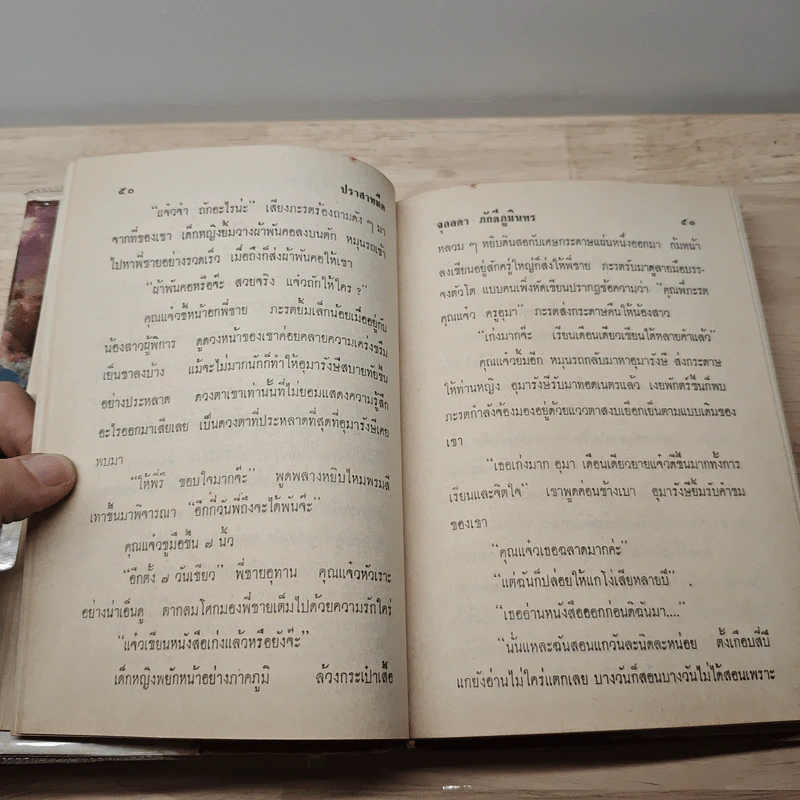 ๕๐ ปราสาทมืด
"แจ๋วจ๋า ถักอะไรน่ะ" เสียงภะรตร้องถามดัง ๆ มา
จากที่ของเขา เด็กหญิงยิ้มวางผ้าพันคอลงบนตัก หมุนรถเข้า
ไปหาพี่ชายอย่างรวดเร็ว เมื่อถึงก็ส่งผ้าพันคอให้เขา
"ผ้าพันคอหรือจ๊ะ สวยจริง แจ๋วถักให้ใคร ?"
คุณแจ๋วชี้หน้าอกพี่ชาย ภะรตยิ้มเล็กน้อยเมื่ออยู่กับ
น้องสาวผู้พิการ ดูดวงหน้าของเขาค่อยคลายความเคร่งขรึม
เย็นชาลงบ้าง แม้จะไม่มากนักก็ทำให้อุมารังษีสบายหทัยขึ้น
อย่างประหลาด ดวงตาเขาเท่านั้นที่ไม่ยอมแสดงความรู้สึก
อะไรออกมาเสียเลย เป็นดวงตาที่ประหลาดที่สุดที่อุมารังษีเคย
พบมา
"ให้พี่รึ ขอบใจมากจ๊ะ" พูดพลางหยิบไหมพรมสี
เทาขึ้นมาพิจารณา "อีกกี่วันพี่ถึงจะได้พันจ๊ะ"
คุณแจ๋วชูมือขึ้น ๗ นิ้ว
"อีกตั้ง ๗ วันเชียว" พี่ชายอุทาน คุณแจ๋วหัวเราะ
อย่างน่าเอ็นดู ตากลมโศกมองพี่ชายเต็มไปด้วยความรักใคร่
"แจ๋วเขียนหนังสือเก่งแล้วหรือยังจ๊ะ"
เด็กหญิงพยักหน้าอย่างภาคภูมิ ล้วงกระเป๋าเสื้อ
จุลลดา ภักดีภูมินทร ๕๑
หลวม ๆ หยิบดินสอกับเศษกระดาษแผ่นหนึ่งออกมา ก้มหน้า
ลงเขียนอยู่สักครู่ใหญ่ก็ส่งให้พี่ชาย ภะรตรับมาดูลายมือบรร-
จงตัวโต แบบคนเพิ่งหัดเขียนปรากฏข้อความว่า "คุณพี่ภะรต
คุณแจ๋ว ครูอุมา" ภะรตส่งกระดาษคืนให้น้องสาว
"เก่งมากจ๊ะ เรียนเดือนเดียวเขียนได้หลายคำแล้ว"
คุณแจ๋วยิ้มอีก หมุนรถกลับมาหาอุมารังษี ส่งกระดาษ
ให้ท่านหญิง อุมารังษีรับมาทอดเนตรแล้ว เงยพักตร์ขึ้นก็พบ
ภะรตกำลังจ้องมองอยู่ด้วยแววตาสงบเยือกเย็นตามแบบเดิมของ
เขา
"เธอเก่งมาก อุมา เดือนเดียวยายแจ๋วดีขึ้นมากทั้งการ
เรียนและจิตใจ" เขาพูดค่อนข้างเบา อุมารังษียิ้มรับคำชม
ของเขา
"คุณแจ๋วเธอฉลาดมากค่ะ"
"แต่ฉันก็ปล่อยให้แกโง่เสียหลายปี"
"เธออ่านหนังสือออกก่อนดิฉันมา...."
"นั่นแหละฉันสอนแกวันละนิดละหน่อย ตั้งเกือบสี่ปี
แกยังอ่านไม่ใคร่แตกเลย บางวันก็สอนบางวันไม่ได้สอนเพราะ